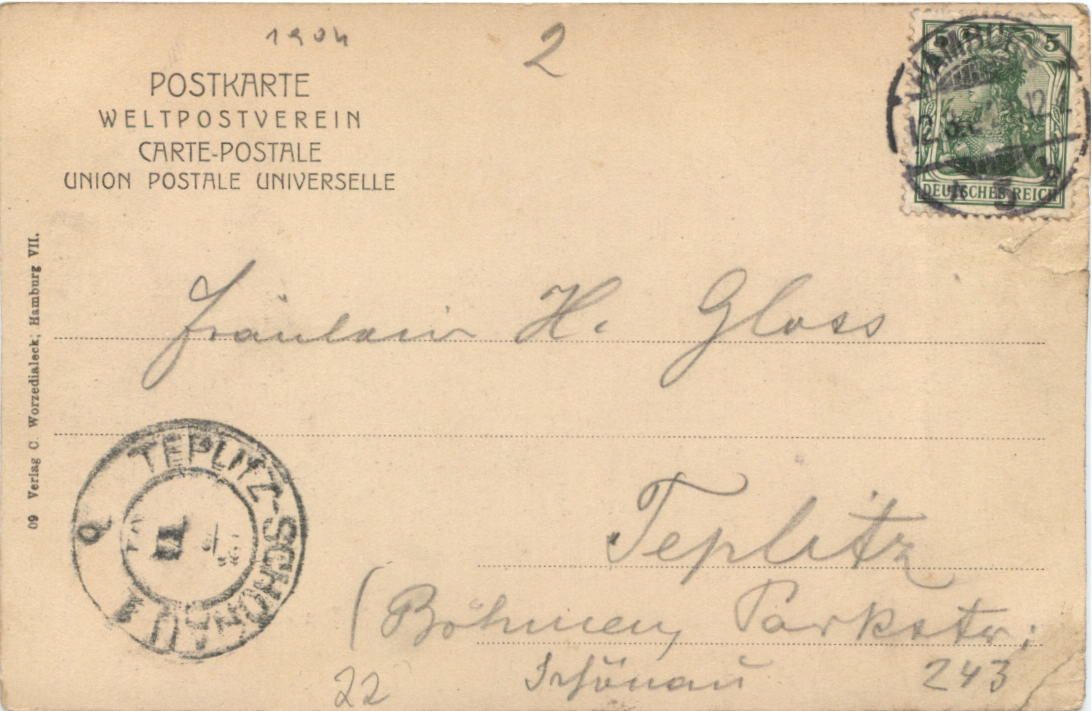 1904
2
POSTKARTE
WELTPOSTVEREIN
CARTE-POSTALE
UNION POSTALE UNIVERSELLE
HAMBURG
12
5
DEUTSCHES REICH
09 Verlag C. Worzedialeck, Hamburg VII.
Fräulein H. Gloss
TEPLITZ-SCHÖNAU 1
Teplitz
(Böhmen, Parkstr.
Schönau
243
22